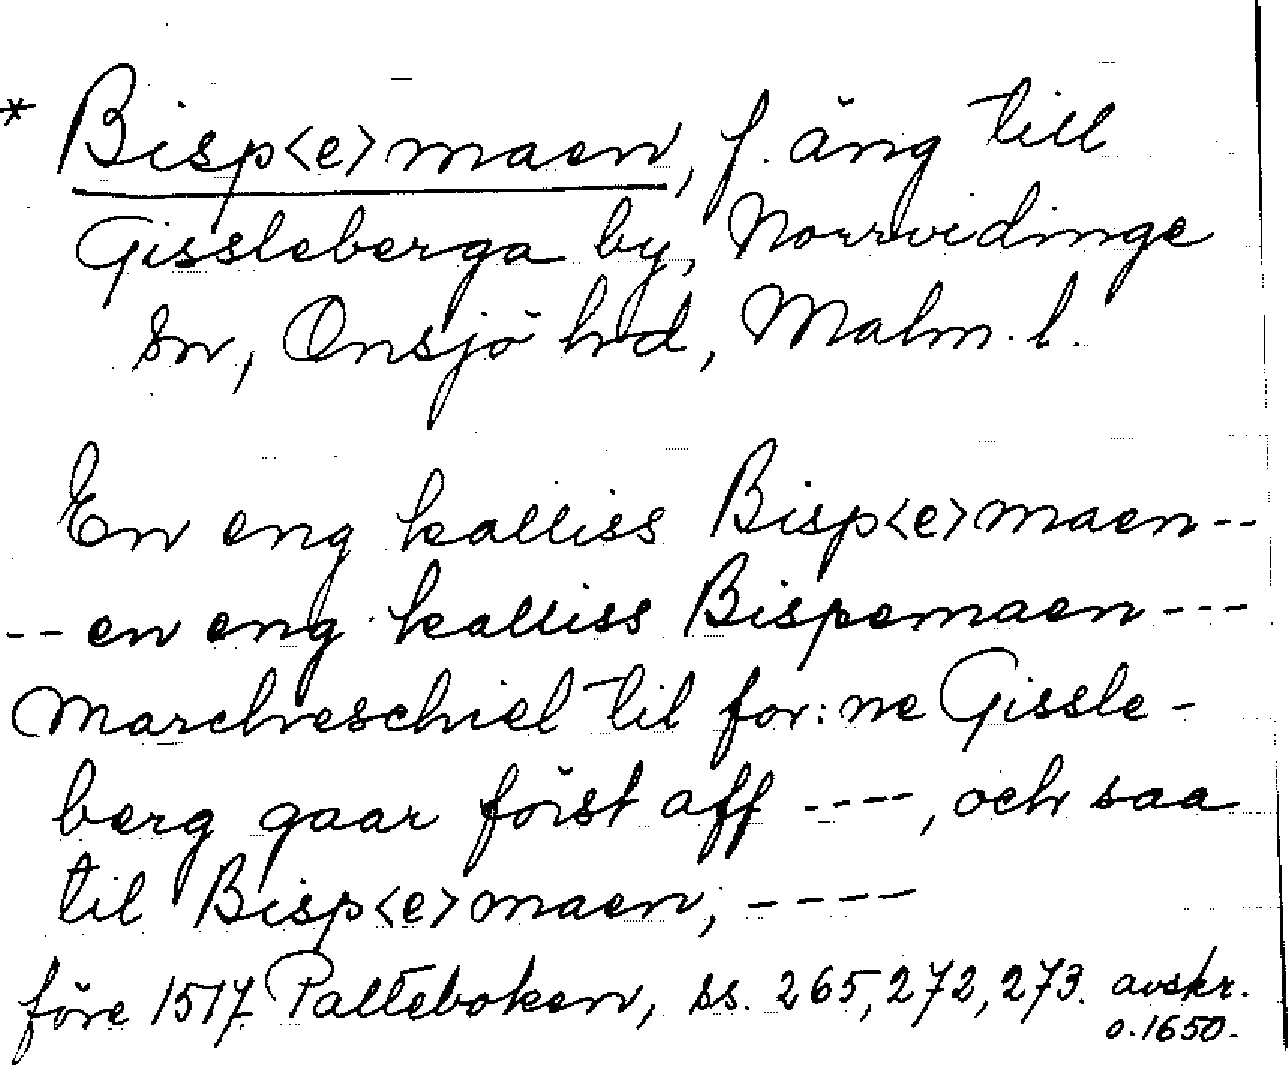 * Bisp<e>maen, f. äng till
Gissleberga by, Norrvidinge
sn, Onsjö hd, Malm. l.
En eng kalliss Bisp<e>maen--
--en eng kalliss Bispemaen---
Marcheschiel til for:ne Gissle-
berg gaar först aff ----, och saa
til Bisp<e>maen, ----
före 1517 Palteboken, ss. 265, 272, 273. avskr.
o. 1650.